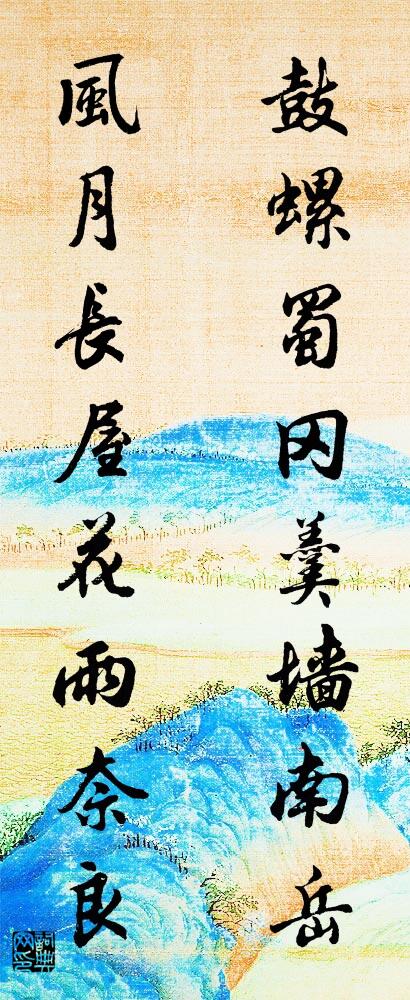 鼓螺蜀冈羹墙南岳
風月長屋花雨奈良